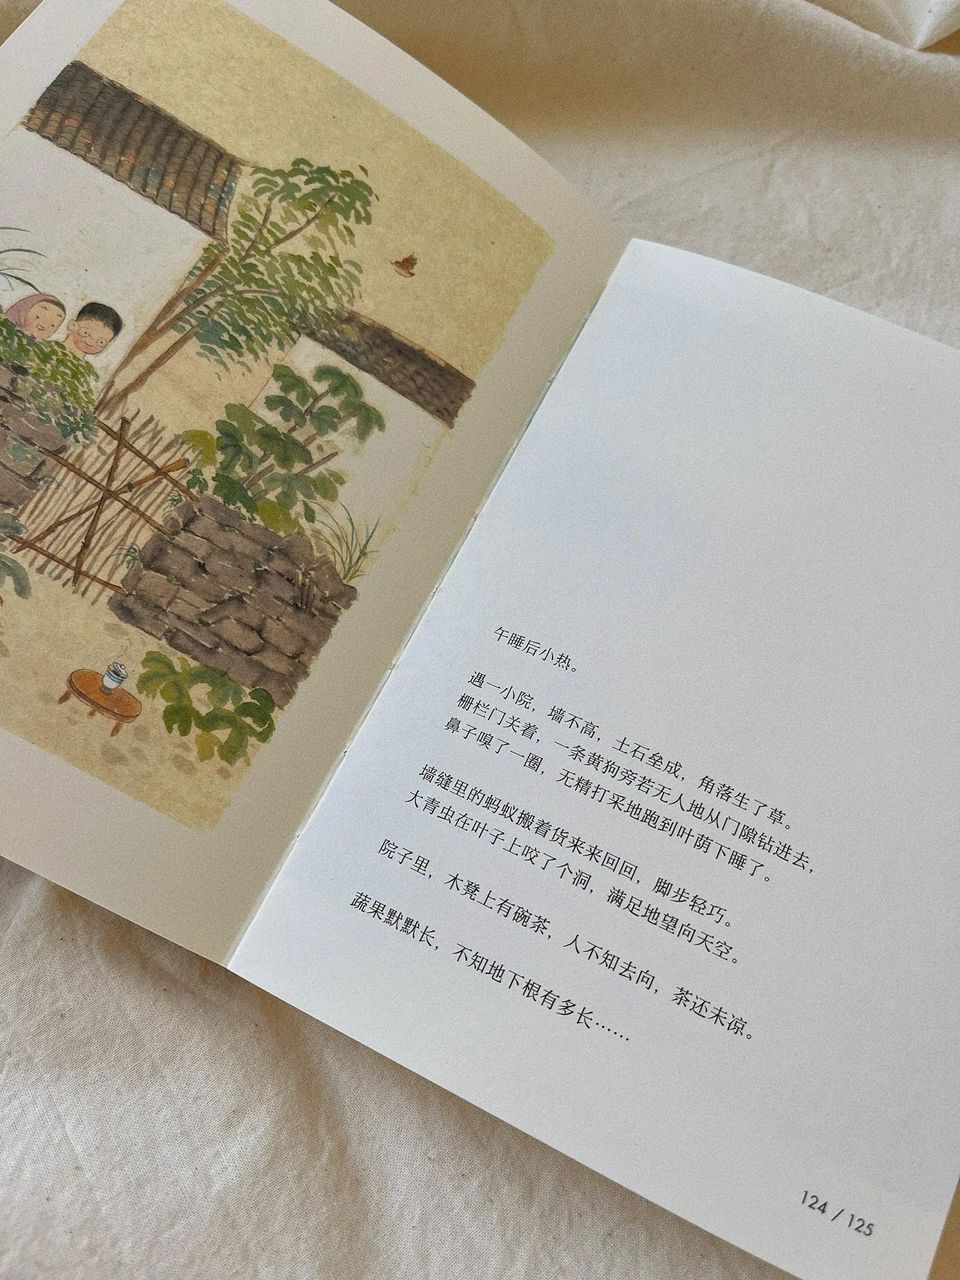 午睡后小热。
遇一小院，墙不高，土石垒成，角落生了草。
栅栏门关着，一条黄狗旁若无人地从门隙钻进去，
鼻子嗅了一圈，无精打采地跑到叶荫下睡了。
墙缝里的蚂蚁搬着货来来回回，脚步轻巧。
大青虫在叶子上咬了个洞，满足地望向天空。
院子里，木凳上有碗茶，人不知去向，茶还未凉。
蔬果默默长，不知地下根有多长……
124 / 125